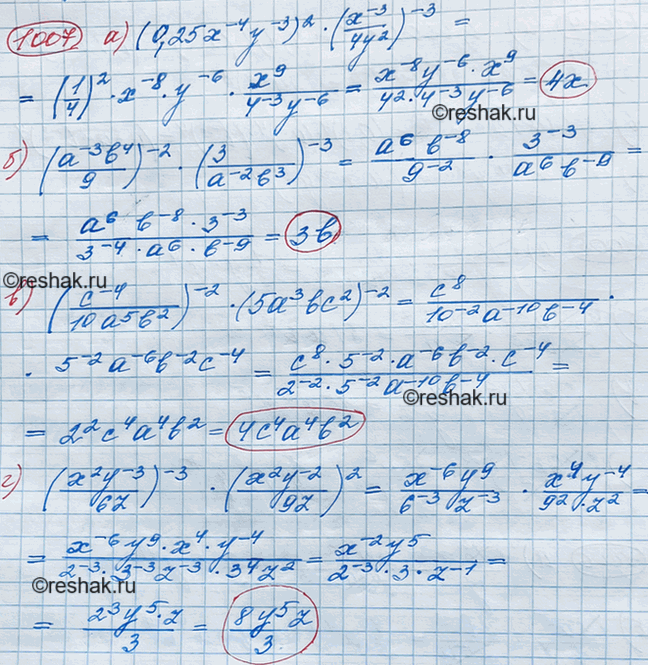 1007 а) (0,25x⁻⁴y⁻³)² · (x⁻³/4y²)⁻³ =
= (1/4)² · x⁻⁸ · y⁻⁶ · x⁹/4⁻³y⁻⁶ = x⁻⁸y⁻⁶ · x⁹/4² · 4⁻³y⁻⁶ = 4x
б) (a⁻³b⁴/9)⁻² · (3/a⁻²b³)⁻³ = a⁶b⁻⁸/9⁻² · 3⁻³/a⁶b⁻⁹ =
= a⁶b⁻⁸ · 3⁻³/3⁻⁴ · a⁶ · b⁻⁹ = 3b
©reshak.ru
©reshak.ru
в) (c⁻⁴/10a⁵b²)⁻² · (5a³bc²)⁻² = c⁸/10⁻²a⁻¹⁰b⁻⁴ ·
· 5⁻²a⁻⁶b⁻²c⁻⁴ = c⁸ · 5⁻² · a⁻⁶b⁻² · c⁻⁴/2⁻² · 5⁻²a⁻¹⁰b⁻⁴ =
©reshak.ru
= 2²c⁴a⁴b² = 4c⁴a⁴b²
г) (x²y⁻³/6z)⁻³ · (x²y⁻²/9z)² = x⁻⁶y⁹/6⁻³z⁻³ · x⁴y⁻⁴/9² · z² =
= x⁻⁶y⁹ · x⁴ · y⁻⁴/2⁻³ · 3⁻³z⁻³ · 3⁴z² = x⁻²y⁵/2⁻³ · 3 · z⁻¹ =
©reshak.ru
= 2³y⁵ · z/3 = 8y⁵z/3